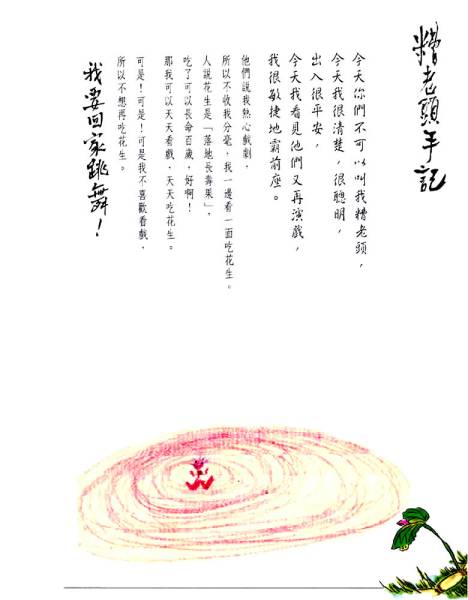 糟老頭手記
今天你們不可以叫我糟老頭，
今天我很清楚，很聰明，
出入很平安，
今天我看見他們又再演戲，
我很敏捷地霸前座。
他們說我熱心戲劇，
所以不收我分毫，我一邊看一面吃花生。
人說花生是「落地長壽果」，
吃了可以長命百歲，好啊！
那我可以天天看戲，天天吃花生。
可是！可是！可是我不喜歡看戲，
所以不想再吃花生。
我要回家跳舞！